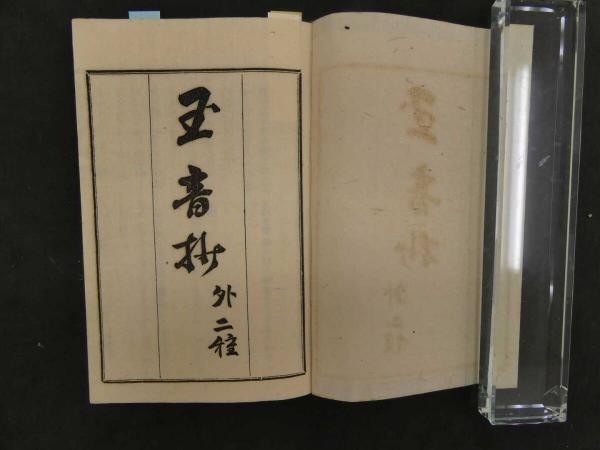 玉音抄
外二種